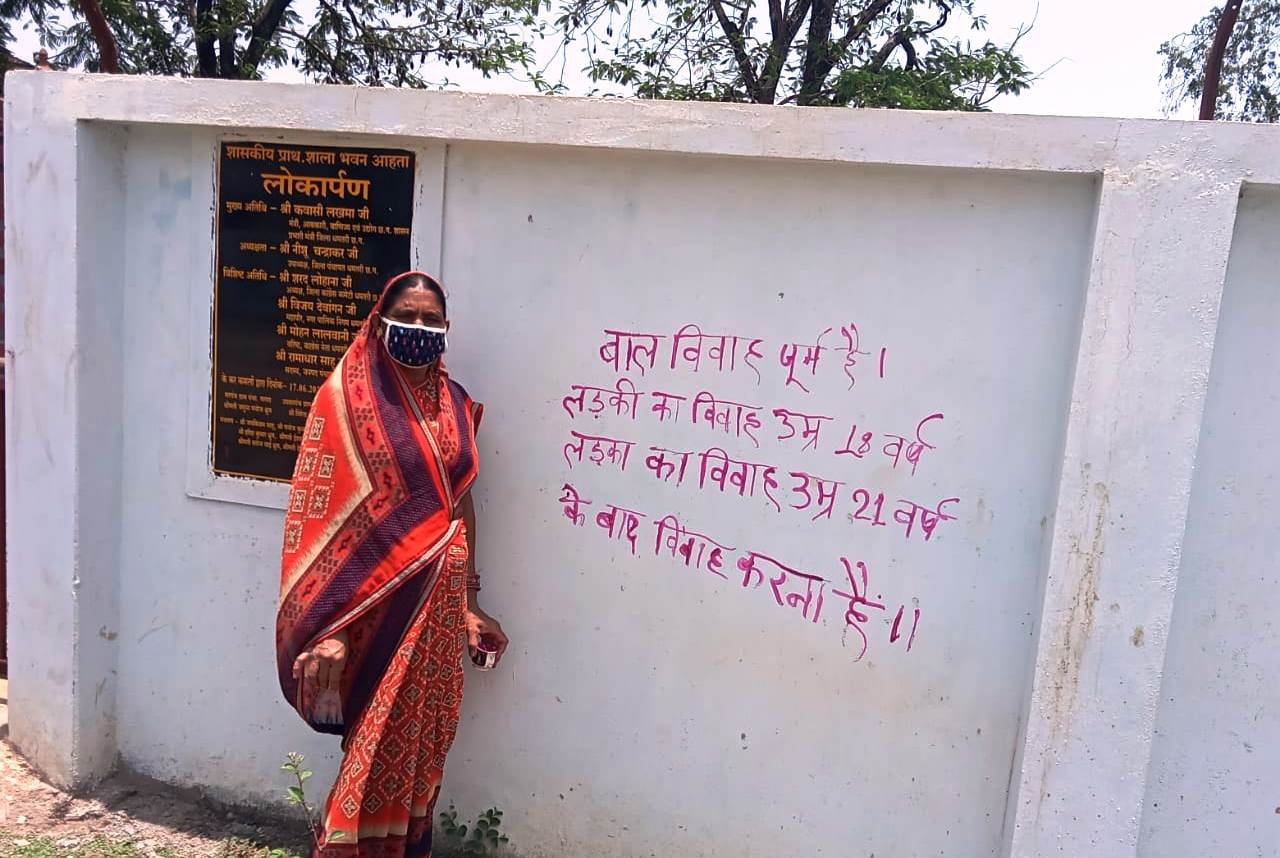 शासकीय प्राथ.शाला भवन आहता
लोकार्पण
मुख्य अतिथि – श्री कवासी लखमा जी
मंत्री, आबकारी, वाणिज्य एवं उद्योग छ.ग. शासन
प्रभारी मंत्री जिला धमतरी छ.ग.
अध्यक्षता – श्री नीशू चन्द्राकर जी
उपाध्यक्ष, जिला पंचायत धमतरी छ.ग.
विशिष्ट अतिथि – श्री शरद लोहाना जी
अध्यक्ष, जिला कांग्रेस कमेटी धमतरी छ
श्री विजय देवांगन जी
महापौर, नगर पालिक निगम
श्री मोहन लालवानी
वरिष्ठ, कांग्रेस नेता
श्री रामाधार साहू
सदस्य, जनपद
के कर कमलों द्वारा दिनांक– 17.06.20
बाल विवाह जूर्म है।
लड़की का विवाह उम्र 18 वर्ष
लड़का का विवाह उम्र 21 वर्ष
के बाद विवाह करना हैं।।